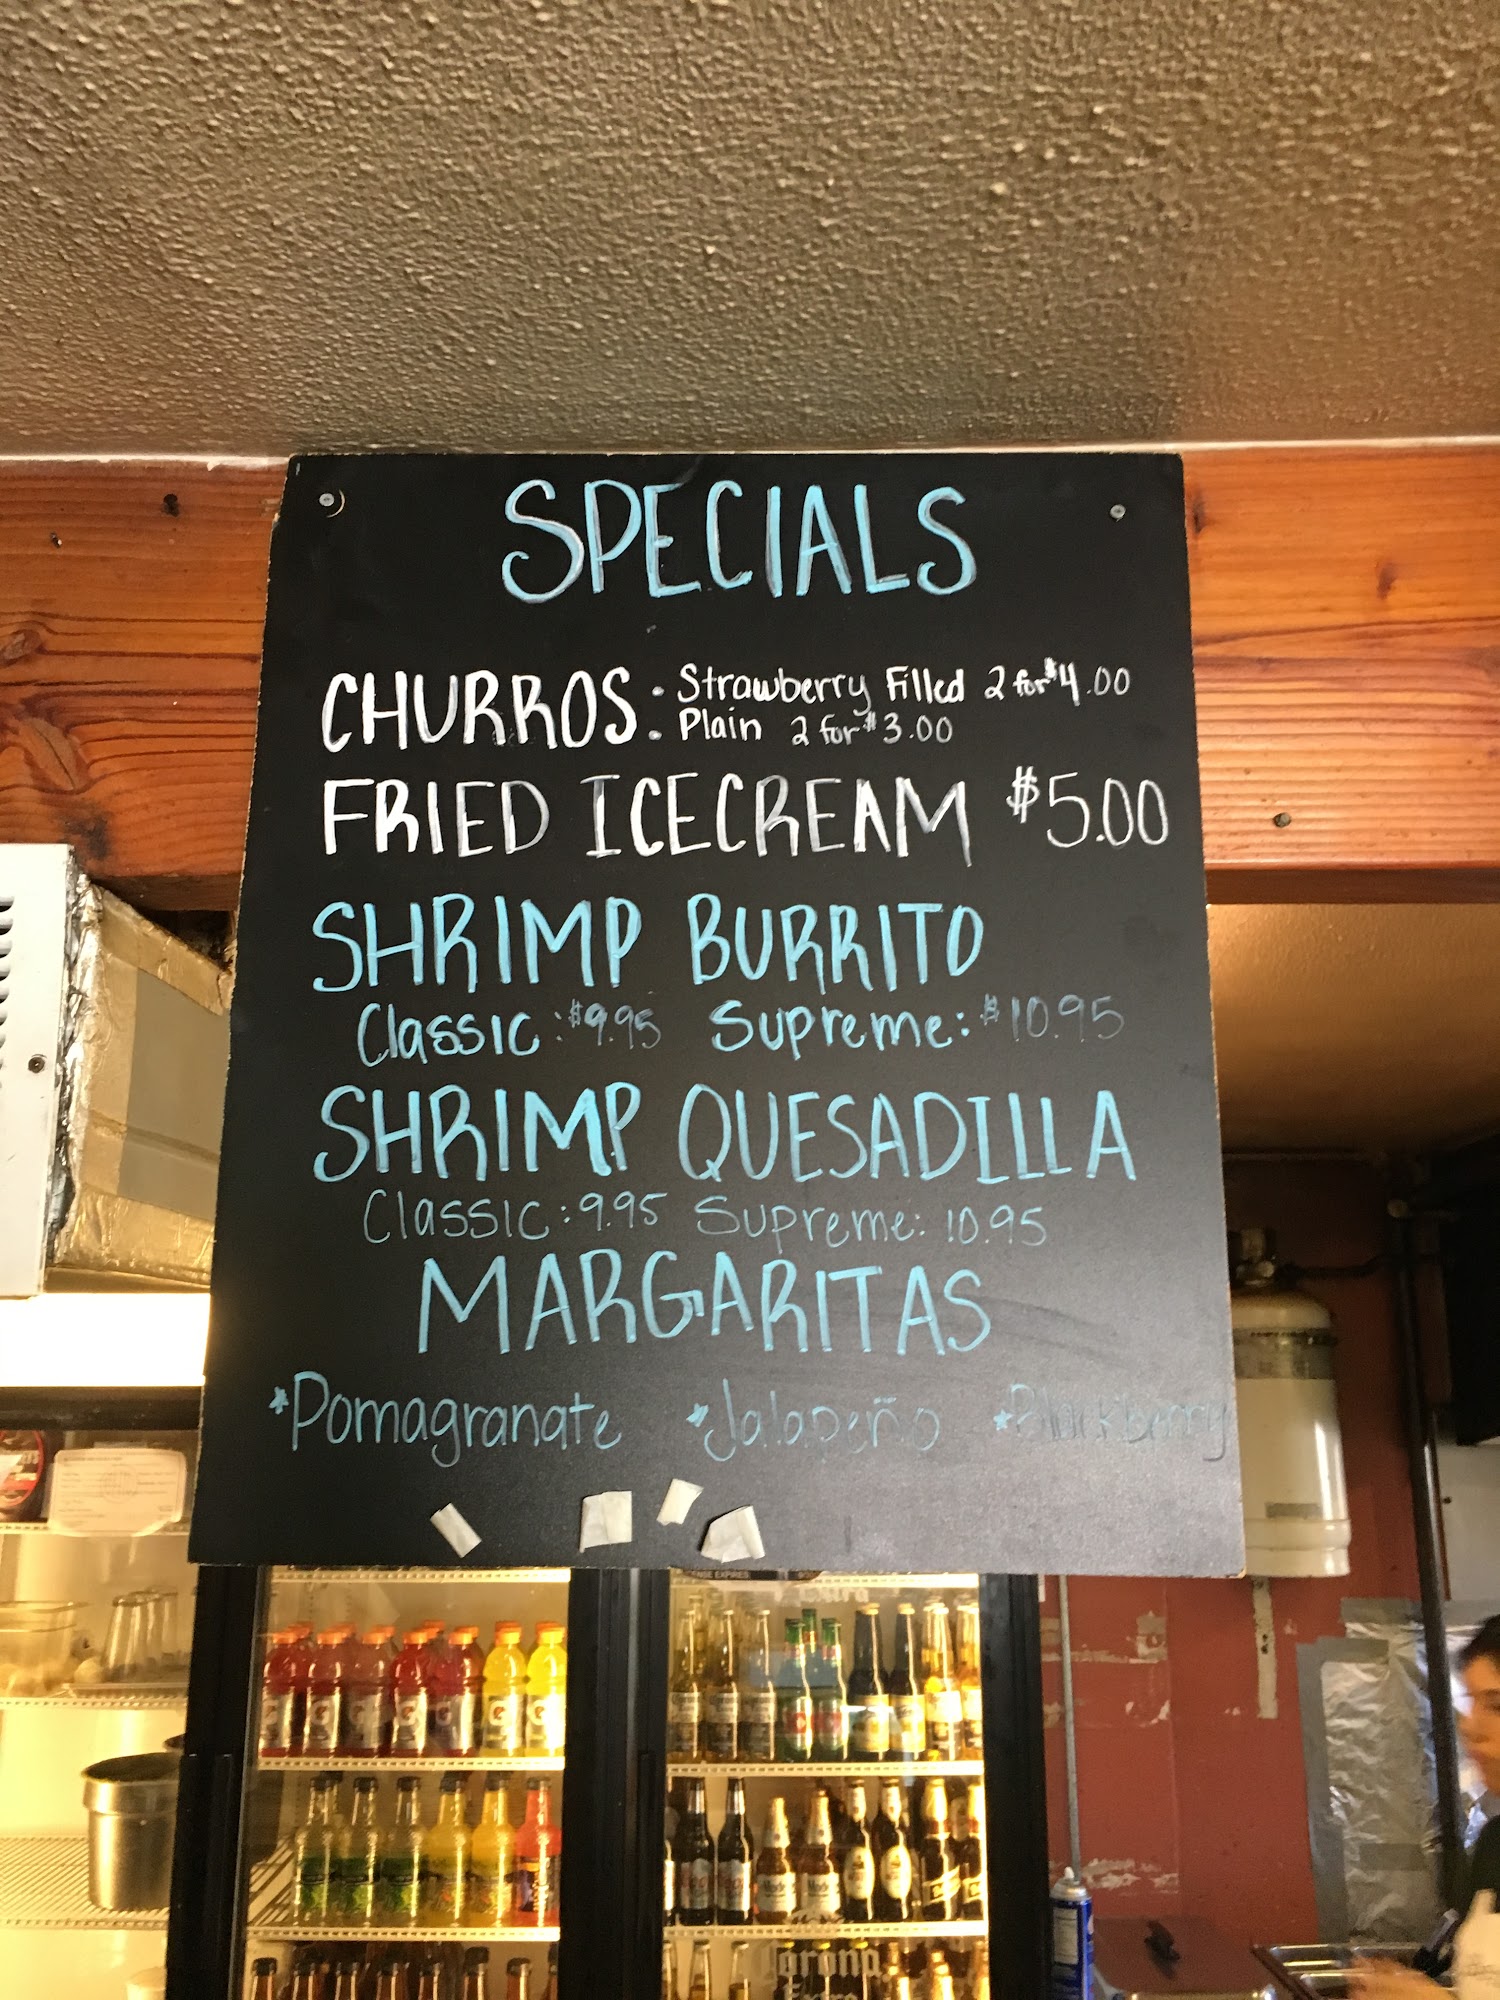 SPECIALS
CHURROS: Strawberry Filled 2 for $4.00
Plain 2 for $3.00
FRIED ICECREAM $5.00
SHRIMP BURRITO
Classic: $9.95 Supreme: $10.95
SHRIMP QUESADILLA
Classic: 9.95 Supreme: 10.95
MARGARITAS
*Pomagranate *Jalapeño *Blackberry
ENSE EXPIRES
Corona
Extra